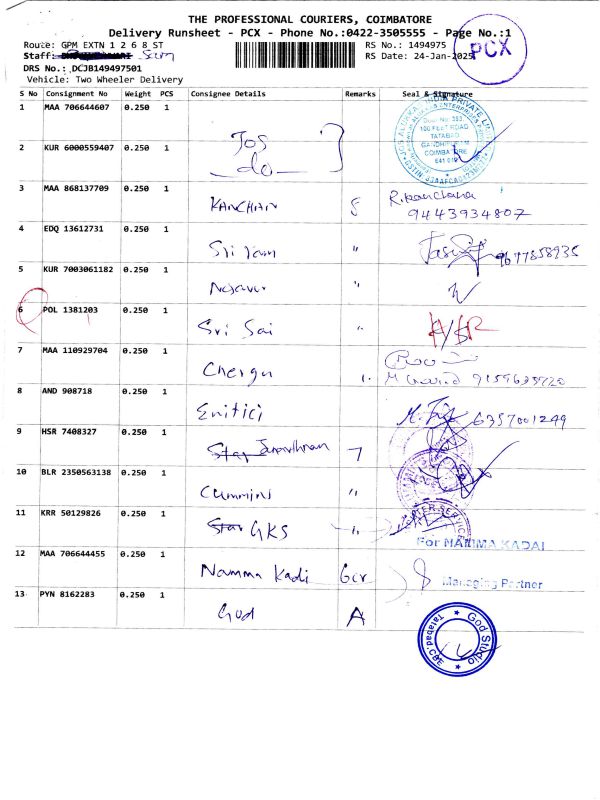 THE PROFESSIONAL COURIERS, COIMBATORE
Delivery Runsheet - PCX - Phone No.:0422-3505555 - Page No.:1
Route: GPM EXTN 1 2 6 8 ST RS No.: 1494975
Staff: Sam RS Date: 24-Jan-2025
PCX
DRS No.: DCJB149497501
Vehicle: Two Wheeler Delivery
S No Consignment No Weight PCS Consignee Details Remarks Seal & Signature
1 MAA 706644607 0.250 1 Jos
2 KUR 6000559407 0.250 1 do
100 FEET ROAD
TATABAD
COIMBATORE
3 MAA 868137709 0.250 1 KANCHAN 8 R.kanchana
9443934807
4 EDQ 13612731 0.250 1 Sri ram "
9677858935
5 KUR 7003061182 0.250 1 "
6 POL 1381203 0.250 1 Sri Sai "
7 MAA 110929704 0.250 1
8 AND 908718 0.250 1 Enitici 6357001249
9 HSR 7408327 0.250 1 Star 7
10 BLR 2350563138 0.250 1 Cummins "
11 KRR 50129826 0.250 1 Star GKS "
For NAMMA KADAI
12 MAA 706644455 0.250 1 Namma Kadi
Managing Partner
13 PYN 8162283 0.250 1 God A
God Studio
Tatabad, CBE